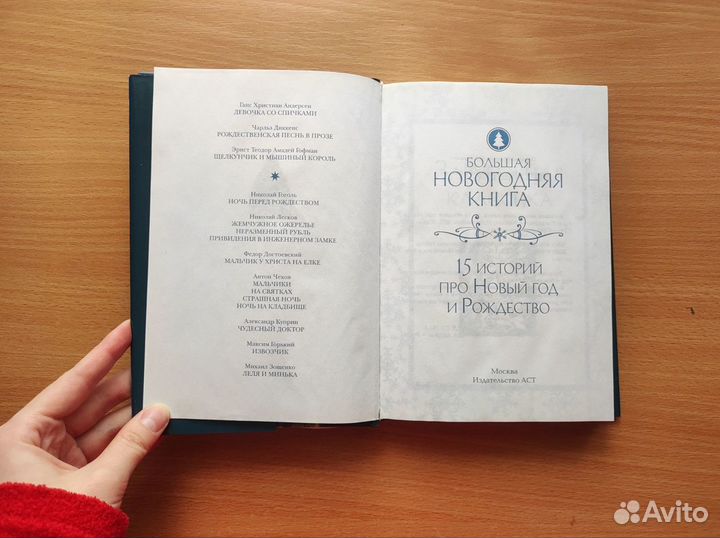 Ганс Христиан Андерсен
ДЕВОЧКА СО СПИЧКАМИ
Чарльз Диккенс
РОЖДЕСТВЕНСКАЯ ПЕСНЬ В ПРОЗЕ
Эрнст Теодор Амадей Гофман
ЩЕЛКУНЧИК И МЫШИНЫЙ КОРОЛЬ
Николай Гоголь
НОЧЬ ПЕРЕД РОЖДЕСТВОМ
Николай Лесков
ЖЕМЧУЖНОЕ ОЖЕРЕЛЬЕ
НЕРАЗМЕННЫЙ РУБЛЬ
ПРИВИДЕНИЯ В ИНЖЕНЕРНОМ ЗАМКЕ
Федор Достоевский
МАЛЬЧИК У ХРИСТА НА ЕЛКЕ
Антон Чехов
МАЛЬЧИКИ
НА СВЯТКАХ
СТРАШНАЯ НОЧЬ
НОЧЬ НА КЛАДБИЩЕ
Александр Куприн
ЧУДЕСНЫЙ ДОКТОР
Максим Горький
ИЗВОЗЧИК
Михаил Зощенко
ЛЕЛЯ И МИНЬКА
БОЛЬШАЯ
НОВОГОДНЯЯ
КНИГА
15 ИСТОРИЙ
ПРО НОВЫЙ ГОД
И РОЖДЕСТВО
Москва
Издательство АСТ
Avito